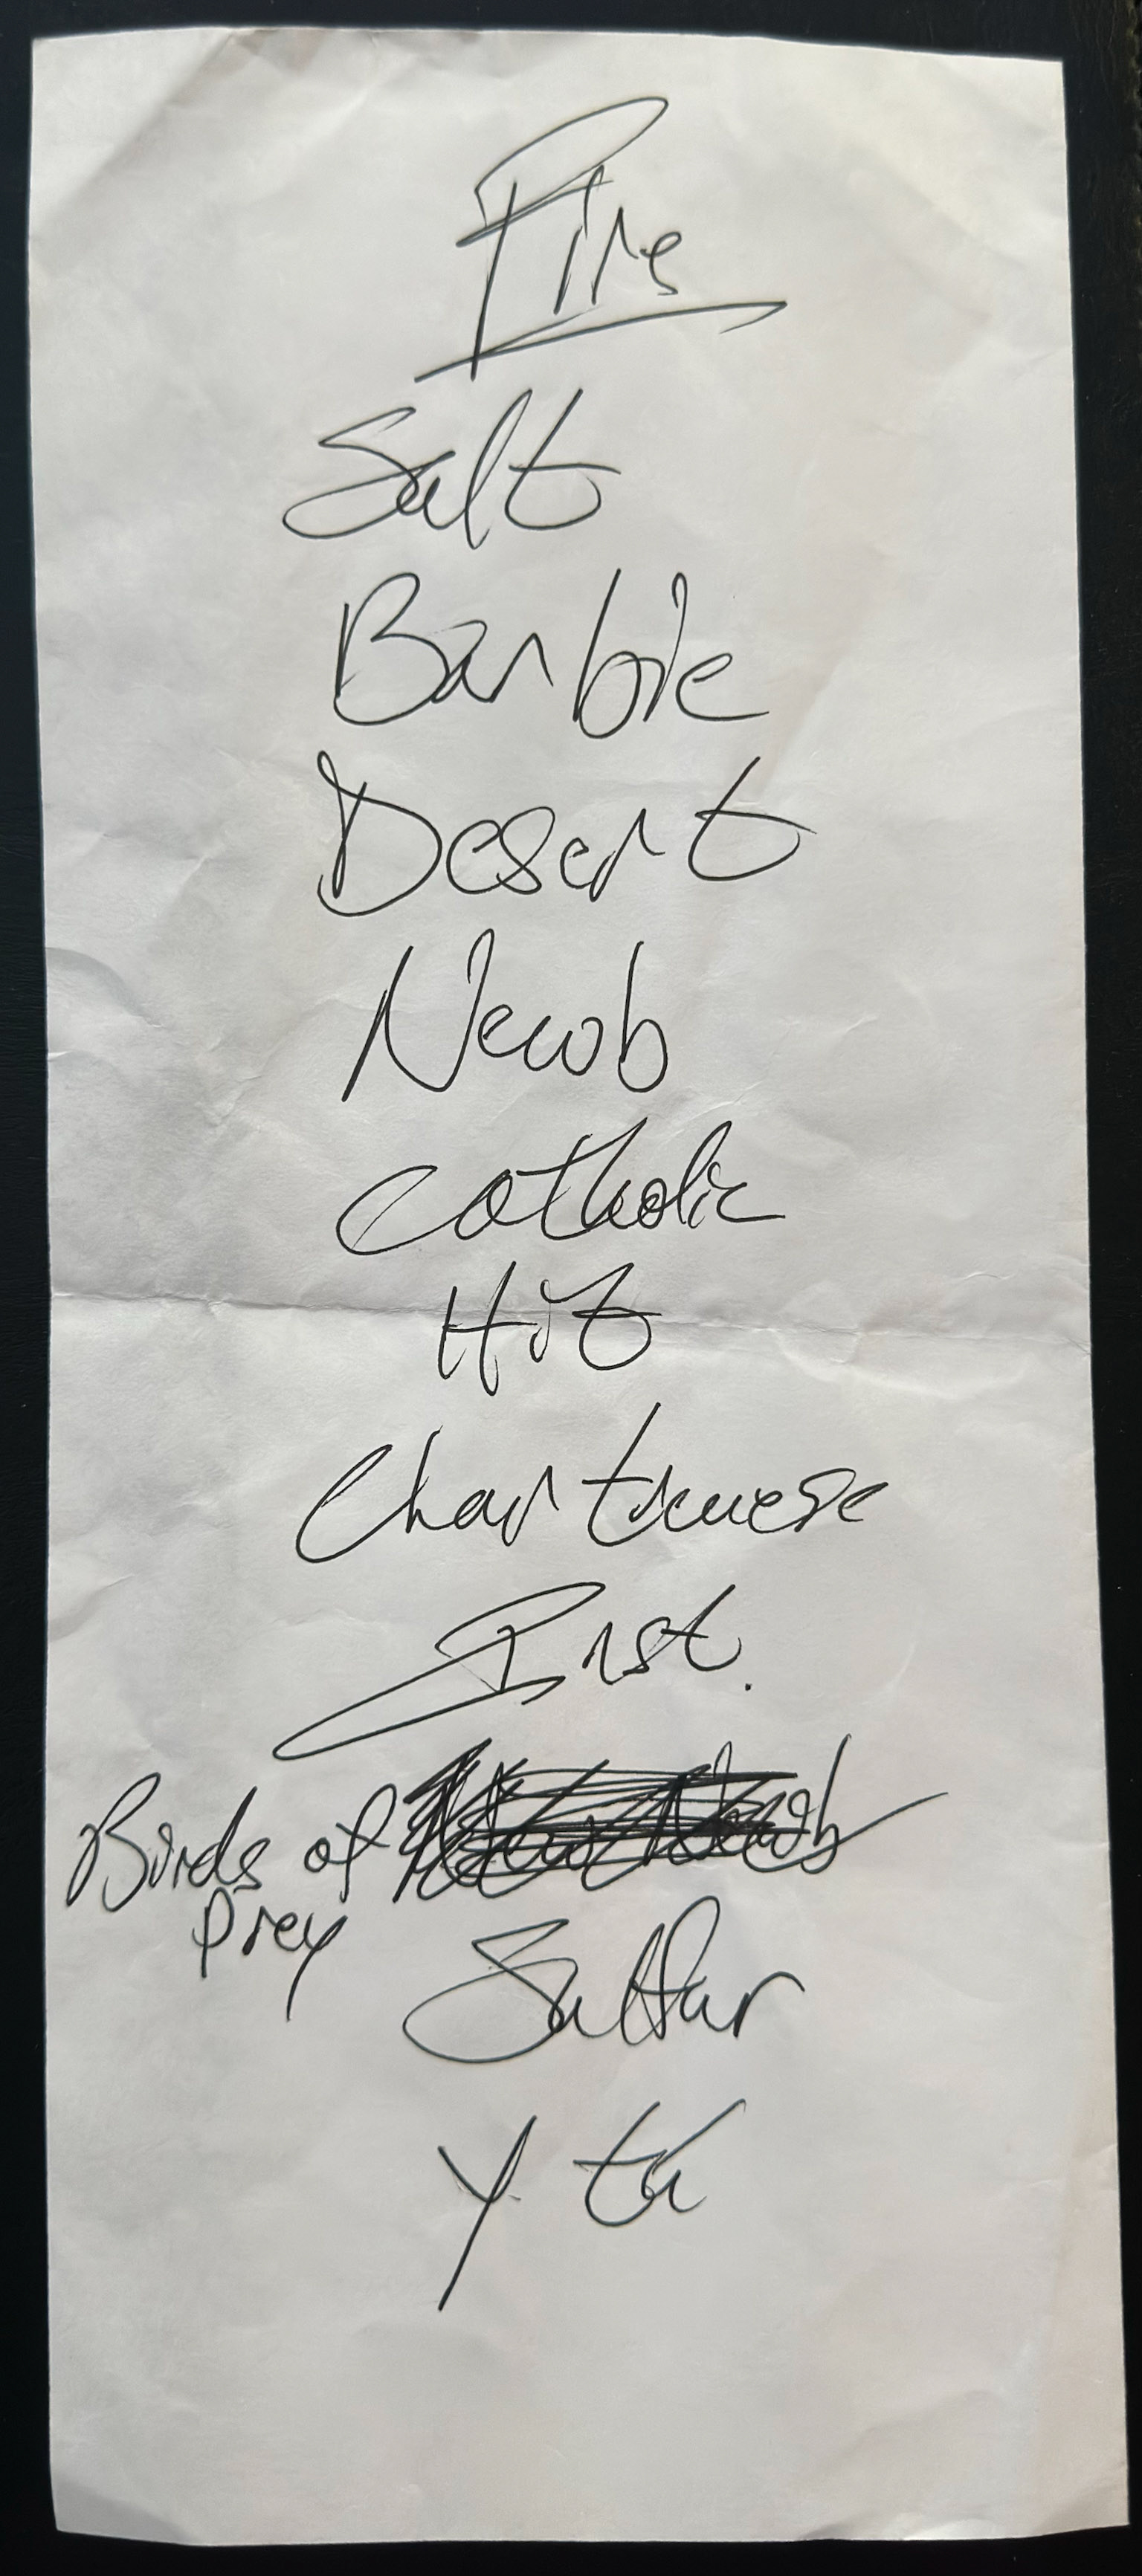 Fire
Salt
Barbie
Desert
Newob
Catholic
Hit
Chartruese
First.
Birds of
Prey
Sulfur